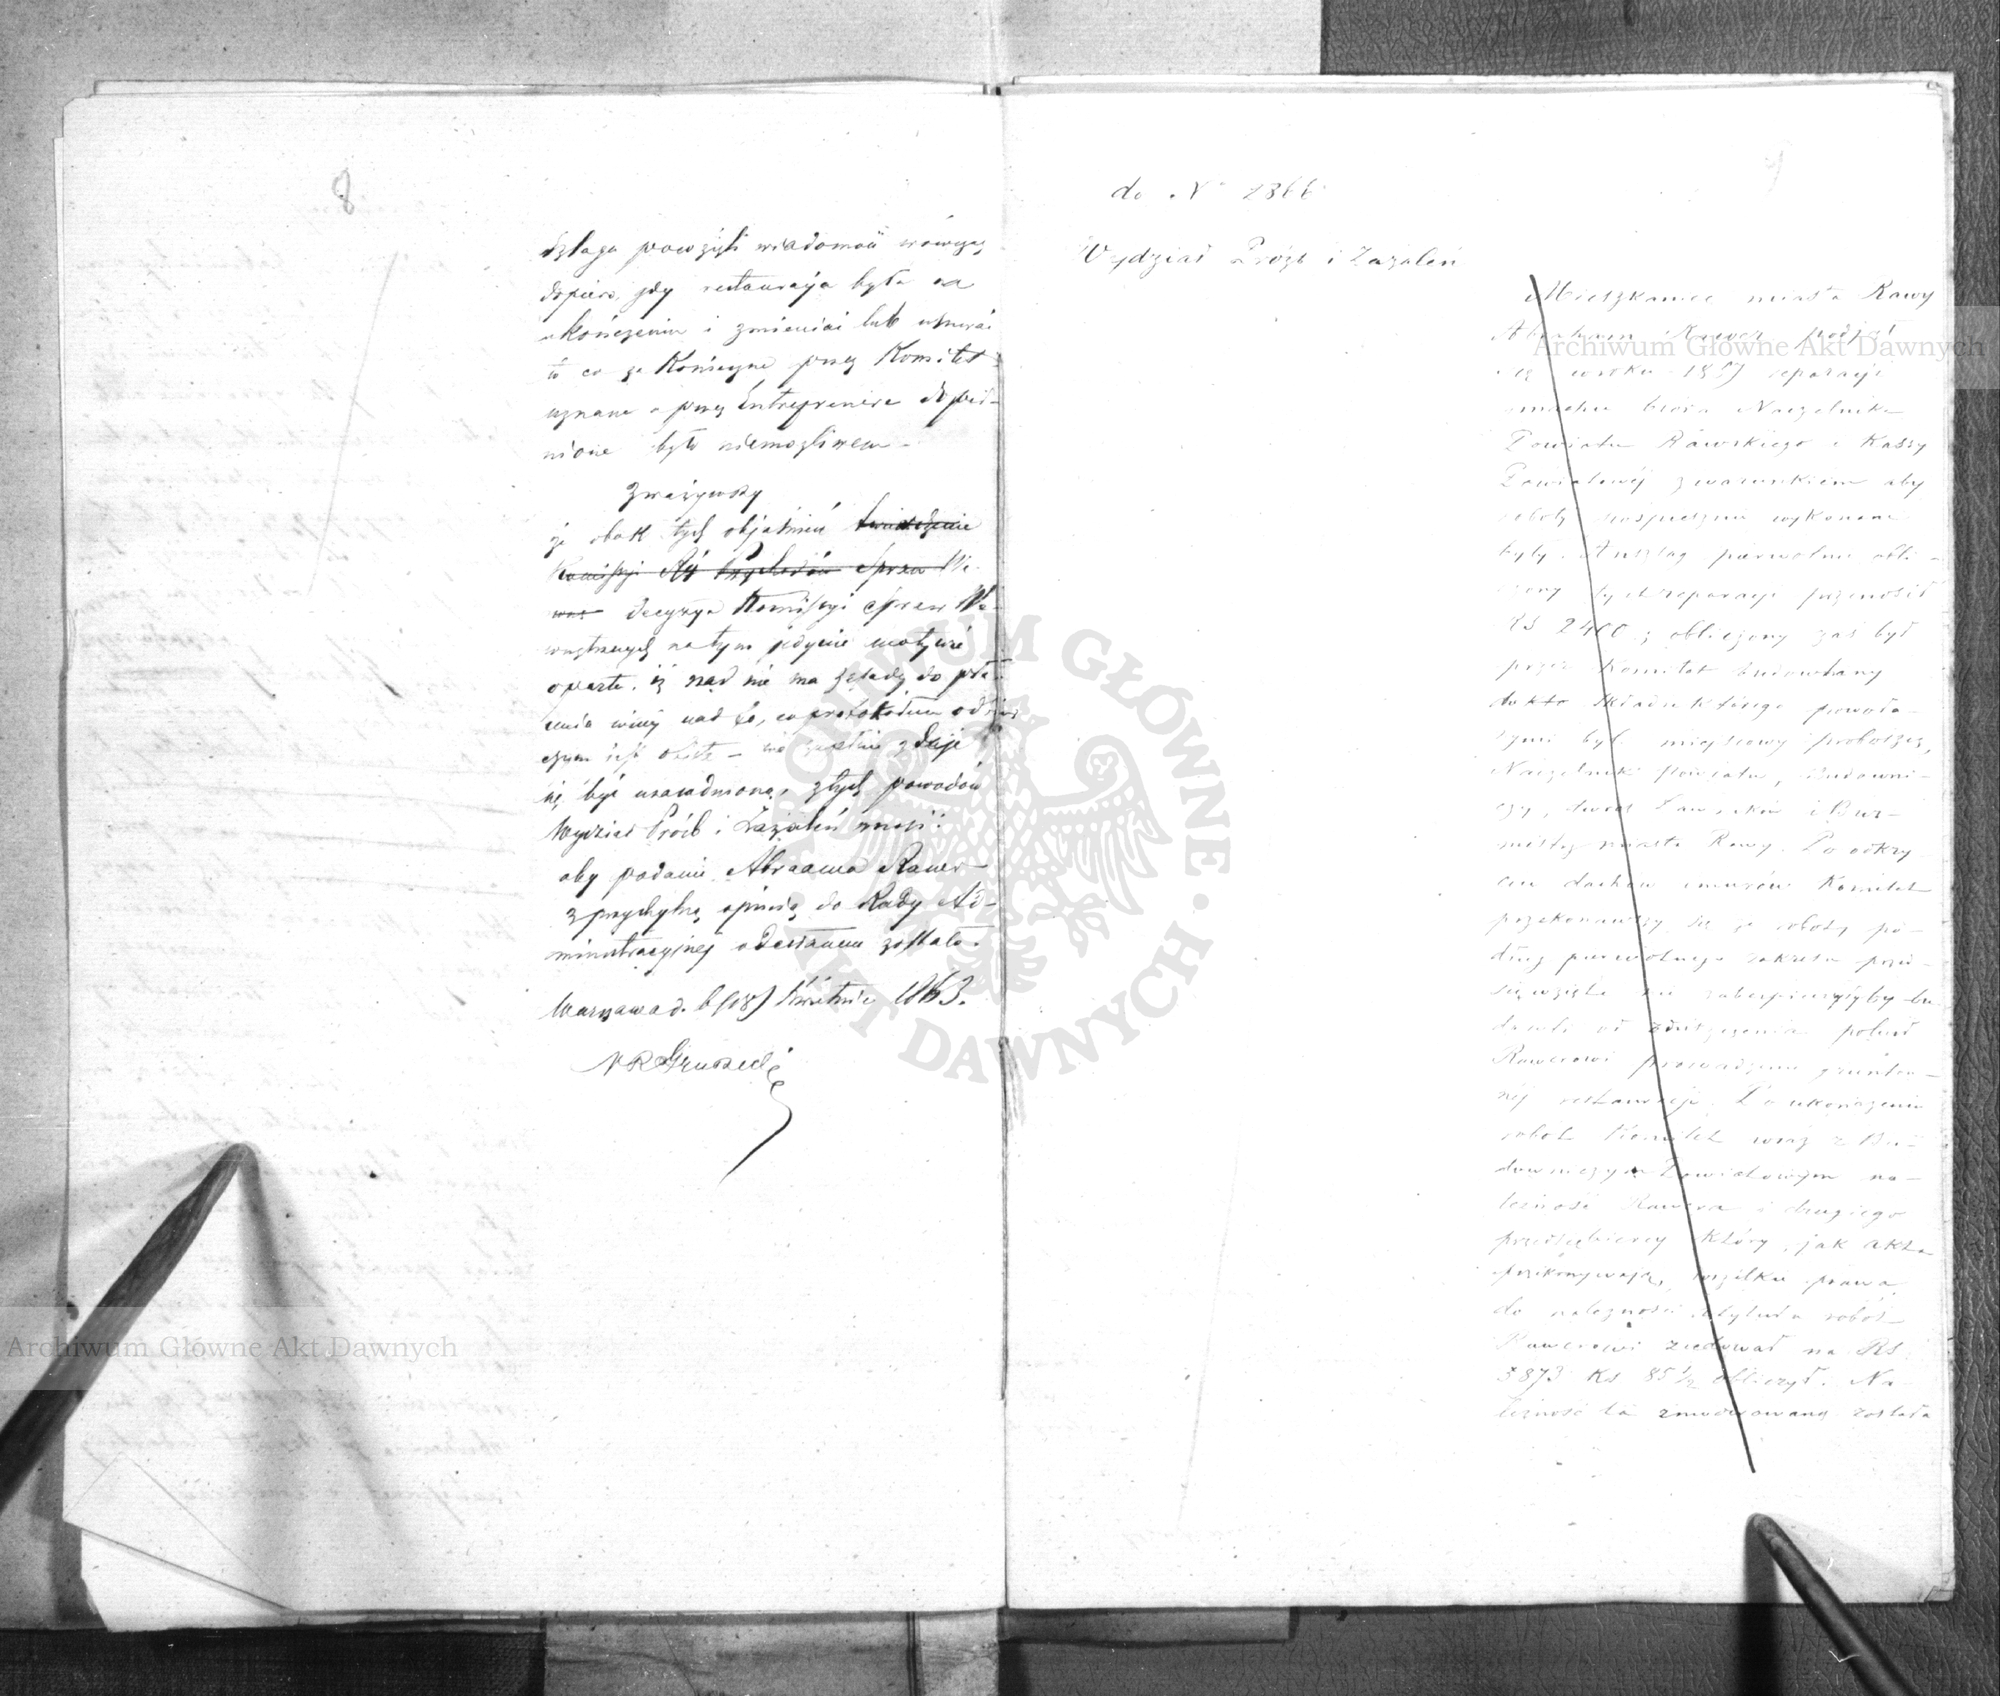 8
powzięli wiadomość wówczas
dopiero, gdy restauracja była na
ukończeniu i zmieniać lub usuwać
to co za konieczne przez Komitet
uznane a przez Entreprenera dopeł-
nione było niemożliwem -
Zważywszy
że obok tych objaśnień
Komissyi Spraw We
decyzya Komissyi Spraw We-
wnętrznych na tym jedynie motywie
oparta, iż rząd nie ma
nad to, co protokółem
nie zdaje
się być uzasadnioną, z tych powodów
Wydział Próśb i Zażaleń wnosi:
aby podanie Abraama Rawer
z przychylną opinią do Rady Ad-
ministracyjnej odesłanem zostało.
Warszawa d. 6 (18) Kwietnia 1863.
do N° 2366
Wydział Próźb i Zażaleń
Mieszkaniec miasta Rawy
Abraham Rawer podjął
się w roku 1859 reparacyi
gmachu biura Naczelnika
Powiatu Rawskiego i Kassy
Powiatowéj z warunkiem aby
roboty pospiesznie wykonane
były. Anszlag pierwotnie obli-
czony tych reparacji przenosił
RS 2400, obliczony zaś był
przez Komitet budowlany
do składu którego powoła-
nymi był miejscowy proboszcz,
Naczelnik Powiatu, Budowni-
czy, dwóch Ławników i Bur-
mistrz miasta Rawy. Po odkry-
ciu dachów i murów Komitet
przekonawszy się że roboty po-
dług pierwotnego zakresu przed-
sięwzięte nie zabezpieczyłyby bu-
dowli od zniszczenia polecił
Rawerowi prowadzenie grunto-
nej restauracji. Po ukończeniu
robót Komitet wraz z Bu-
downiczym Powiatowym na-
leżność Rawera i drugiego
przedsiębiercy który, jak akta
przekonywają, wszelkie prawa
do należności z tytułu robót
Rawerowi zcedował na RS
3873 Ks 85 1/2 obliczył. Na-
leżność ta zmoderowaną została
Archiwum Główne Akt Dawnych
Archiwum Główne Akt Dawnych
ARCHIWUM GŁÓWNE AKT DAWNYCH